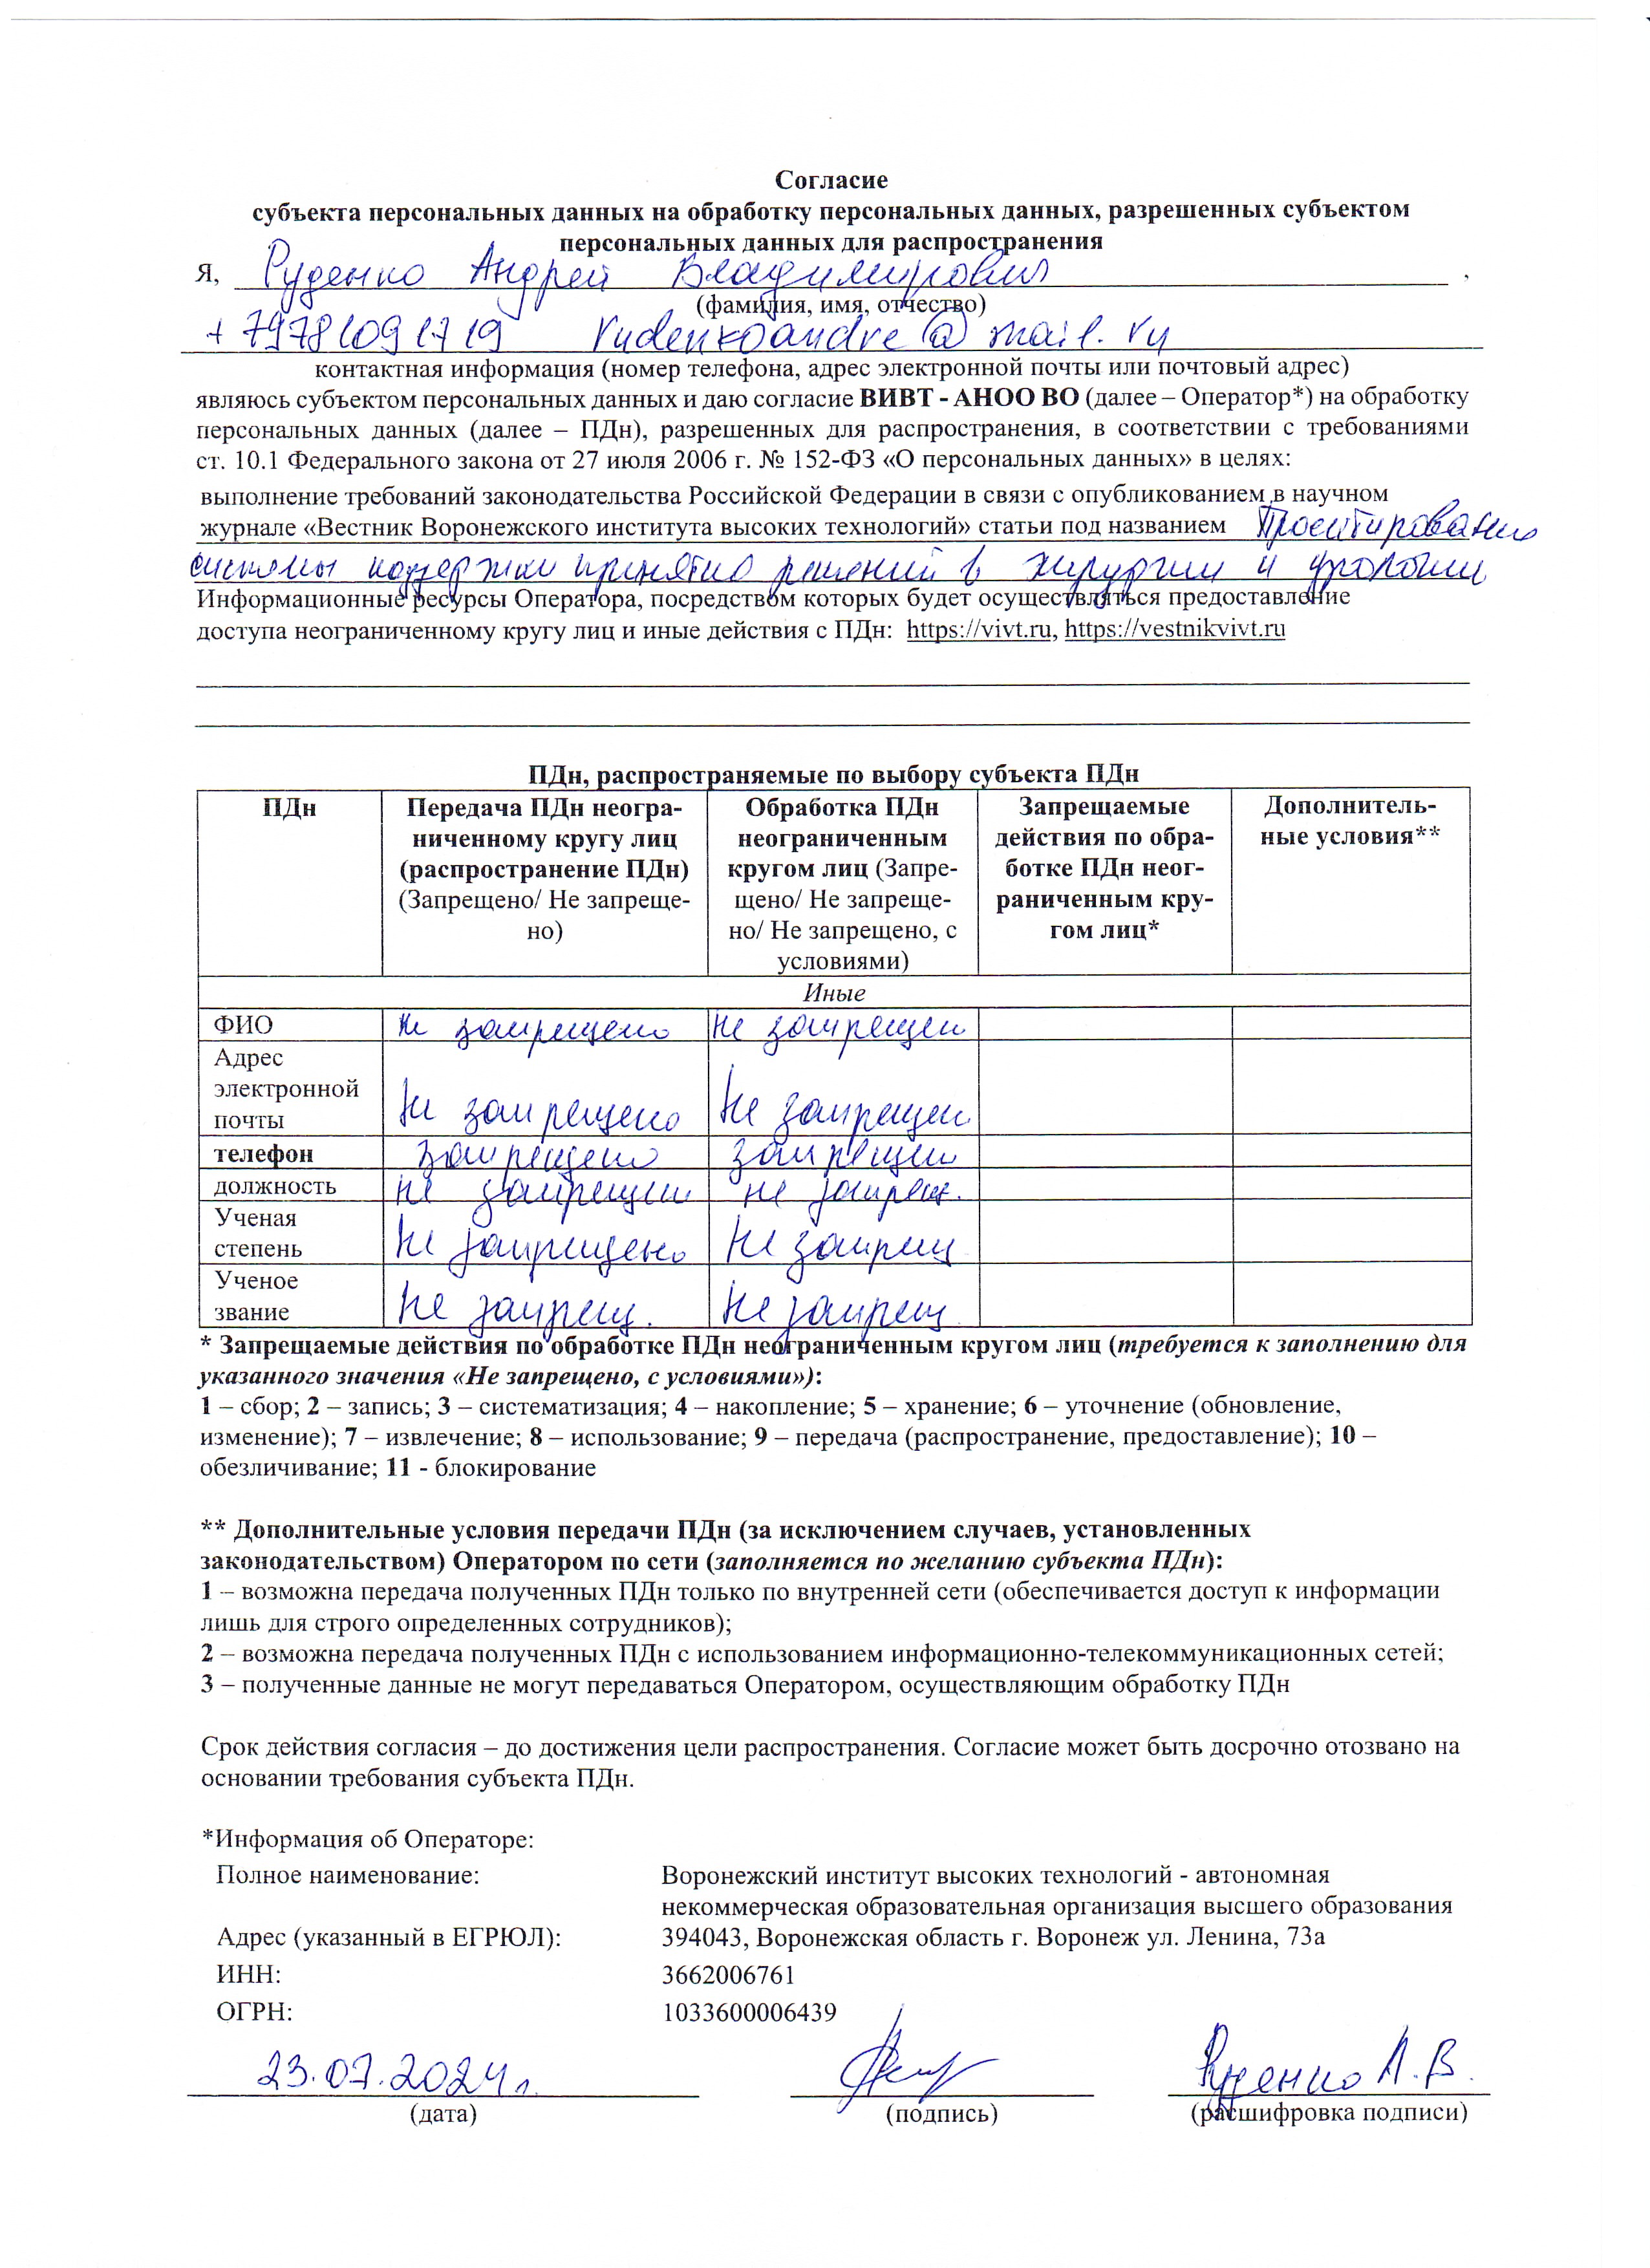 Согласие
субъекта персональных данных на обработку персональных данных, разрешенных субъектом
персональных данных для распространения
Я, Руденко Андрей Владимирович ,
(фамилия, имя, отчество)
+79781091719 rudenkoandre@mail.ru
контактная информация (номер телефона, адрес электронной почты или почтовый адрес)
являюсь субъектом персональных данных и даю согласие ВИВТ - АНОО ВО (далее – Оператор*) на обработку
персональных данных (далее – ПДн), разрешенных для распространения, в соответствии с требованиями
ст. 10.1 Федерального закона от 27 июля 2006 г. № 152-ФЗ «О персональных данных» в целях:
выполнение требований законодательства Российской Федерации в связи с опубликованием в научном
журнале «Вестник Воронежского института высоких технологий» статьи под названием Проектирование
системы поддержки принятия решений в хирургии и урологии
Информационные ресурсы Оператора, посредством которых будет осуществляться предоставление
доступа неограниченному кругу лиц и иные действия с ПДн: https://vivt.ru, https://vestnikvivt.ru
ПДн, распространяемые по выбору субъекта ПДн
ПДн
Передача ПДн неогра-
ниченному кругу лиц
(распространение ПДн)
(Запрещено/ Не запреще-
но)
Обработка ПДн
неограниченным
кругом лиц (Запре-
щено/ Не запреще-
но/ Не запрещено, с
условиями)
Запрещаемые
действия по обра-
ботке ПДн неог-
раниченным кру-
гом лиц*
Дополнитель-
ные условия**
Иные
ФИО Не запрещено Не запрещено
Адрес
электронной
почты Не запрещено Не запрещено
телефон запрещено запрещено
должность не запрещено не запрещ.
Ученая
степень Не запрещено Не запрещ
Ученое
звание Не запрещ. Не запрещ
* Запрещаемые действия по обработке ПДн неограниченным кругом лиц (требуется к заполнению для
указанного значения «Не запрещено, с условиями»):
1 – сбор; 2 – запись; 3 – систематизация; 4 – накопление; 5 – хранение; 6 – уточнение (обновление,
изменение); 7 – извлечение; 8 – использование; 9 – передача (распространение, предоставление); 10 –
обезличивание; 11 - блокирование
** Дополнительные условия передачи ПДн (за исключением случаев, установленных
законодательством) Оператором по сети (заполняется по желанию субъекта ПДн):
1 – возможна передача полученных ПДн только по внутренней сети (обеспечивается доступ к информации
лишь для строго определенных сотрудников);
2 – возможна передача полученных ПДн с использованием информационно-телекоммуникационных сетей;
3 – полученные данные не могут передаваться Оператором, осуществляющим обработку ПДн
Срок действия согласия – до достижения цели распространения. Согласие может быть досрочно отозвано на
основании требования субъекта ПДн.
*Информация об Операторе:
Полное наименование: Воронежский институт высоких технологий - автономная
некоммерческая образовательная организация высшего образования
Адрес (указанный в ЕГРЮЛ): 394043, Воронежская область г. Воронеж ул. Ленина, 73а
ИНН: 3662006761
ОГРН: 1033600006439
23.07.2024г. Руденко А.В.
(дата) (подпись) (расшифровка подписи)